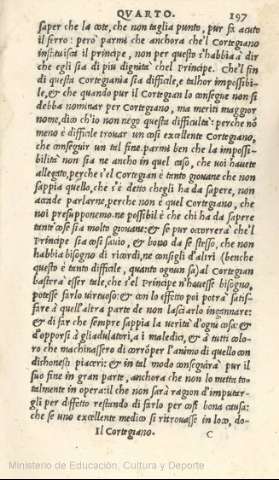 QVARTO. 197
saper che la cote, che non taglia punto, pur fa acuto
il ferro: però parmi che anchora che'l Cortegiano
instituisca il principe, non per questo s'habbia à dir
che egli sia di piu dignità che'l Principe. Che'l fin
di questa Cortegiania sia difficile, e talhor impossibi-
le, & che quando pur il Cortegian lo consegna non si
debba nominar per Cortegiano, ma meriti maggior
nome, dico ch'io non nego questa difficultà: perche nō
meno è difficile trouar un cosi excellente Cortegiano,
che conseguir un tal fine. parmi ben che la impossi-
bilità non sia ne ancho in quel caso, che uoi hauete
allegato, perche s'el Cortegian è tanto giouane che non
sappia quello, che s'è detto chegli ha da sapere, non
accade parlarne, perche non è quel Cortegiano, che
noi presupponemo. ne possibil è che chi ha da sapere
tante cose sia molto giouane: & se pur occorrerà che'l
Principe sia cosi sauio, & bono da se stesso, che non
habbia bisogno di ricordi, ne consigli d'altri (benche
questo è tanto difficile, quanto ognun sa) al Cortegian
basterà esser tale, che s'el Principe n'hauesse bisogno,
potesse farlo uirtuoso: & con lo effetto poi potrà satis-
fare à quell'altra parte de non lasciarlo ingannare:
& di far che sempre sappia la uerità d'ogni cosa: &
d'opporsi à gliadulatori, a i maledici, & à tutti colo-
ro che machinassero di corrōper l'animo di quello con
dishonesti piaceri: & in tal modo conseguirà pur il
suo fine in gran parte, anchora che non lo metta to-
talmente in opera: il che non sarà ragion d'imputar-
gli per diffetto restando di farlo per cosi bona causa:
che se uno excellente medico si ritrouasse in loco, do-
Il Cortegiano. C
Ministerio de Educación, Cultura y Deporte